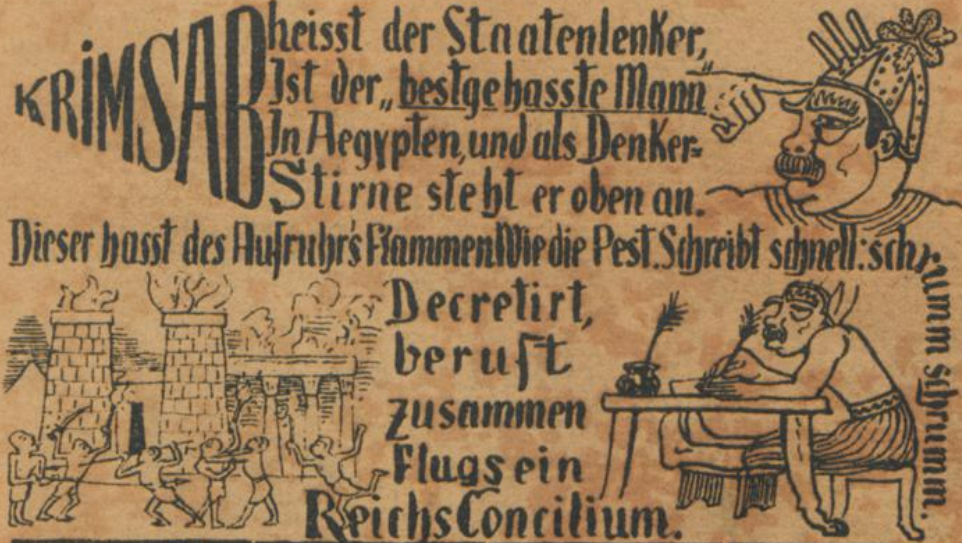 KRIMSAB heisst der Staatenlenker,
Ist der „bestgehasste Mann"
In Aegypten, und als Denker-
Stirne steht er oben an.
Dieser hasst des Aufruhr's Flammen Wie die Pest. Schreibt schnell: schrumm schrumm.
Decretirt,
beruft
zusammen
Flugs ein
Reichs Concilium.